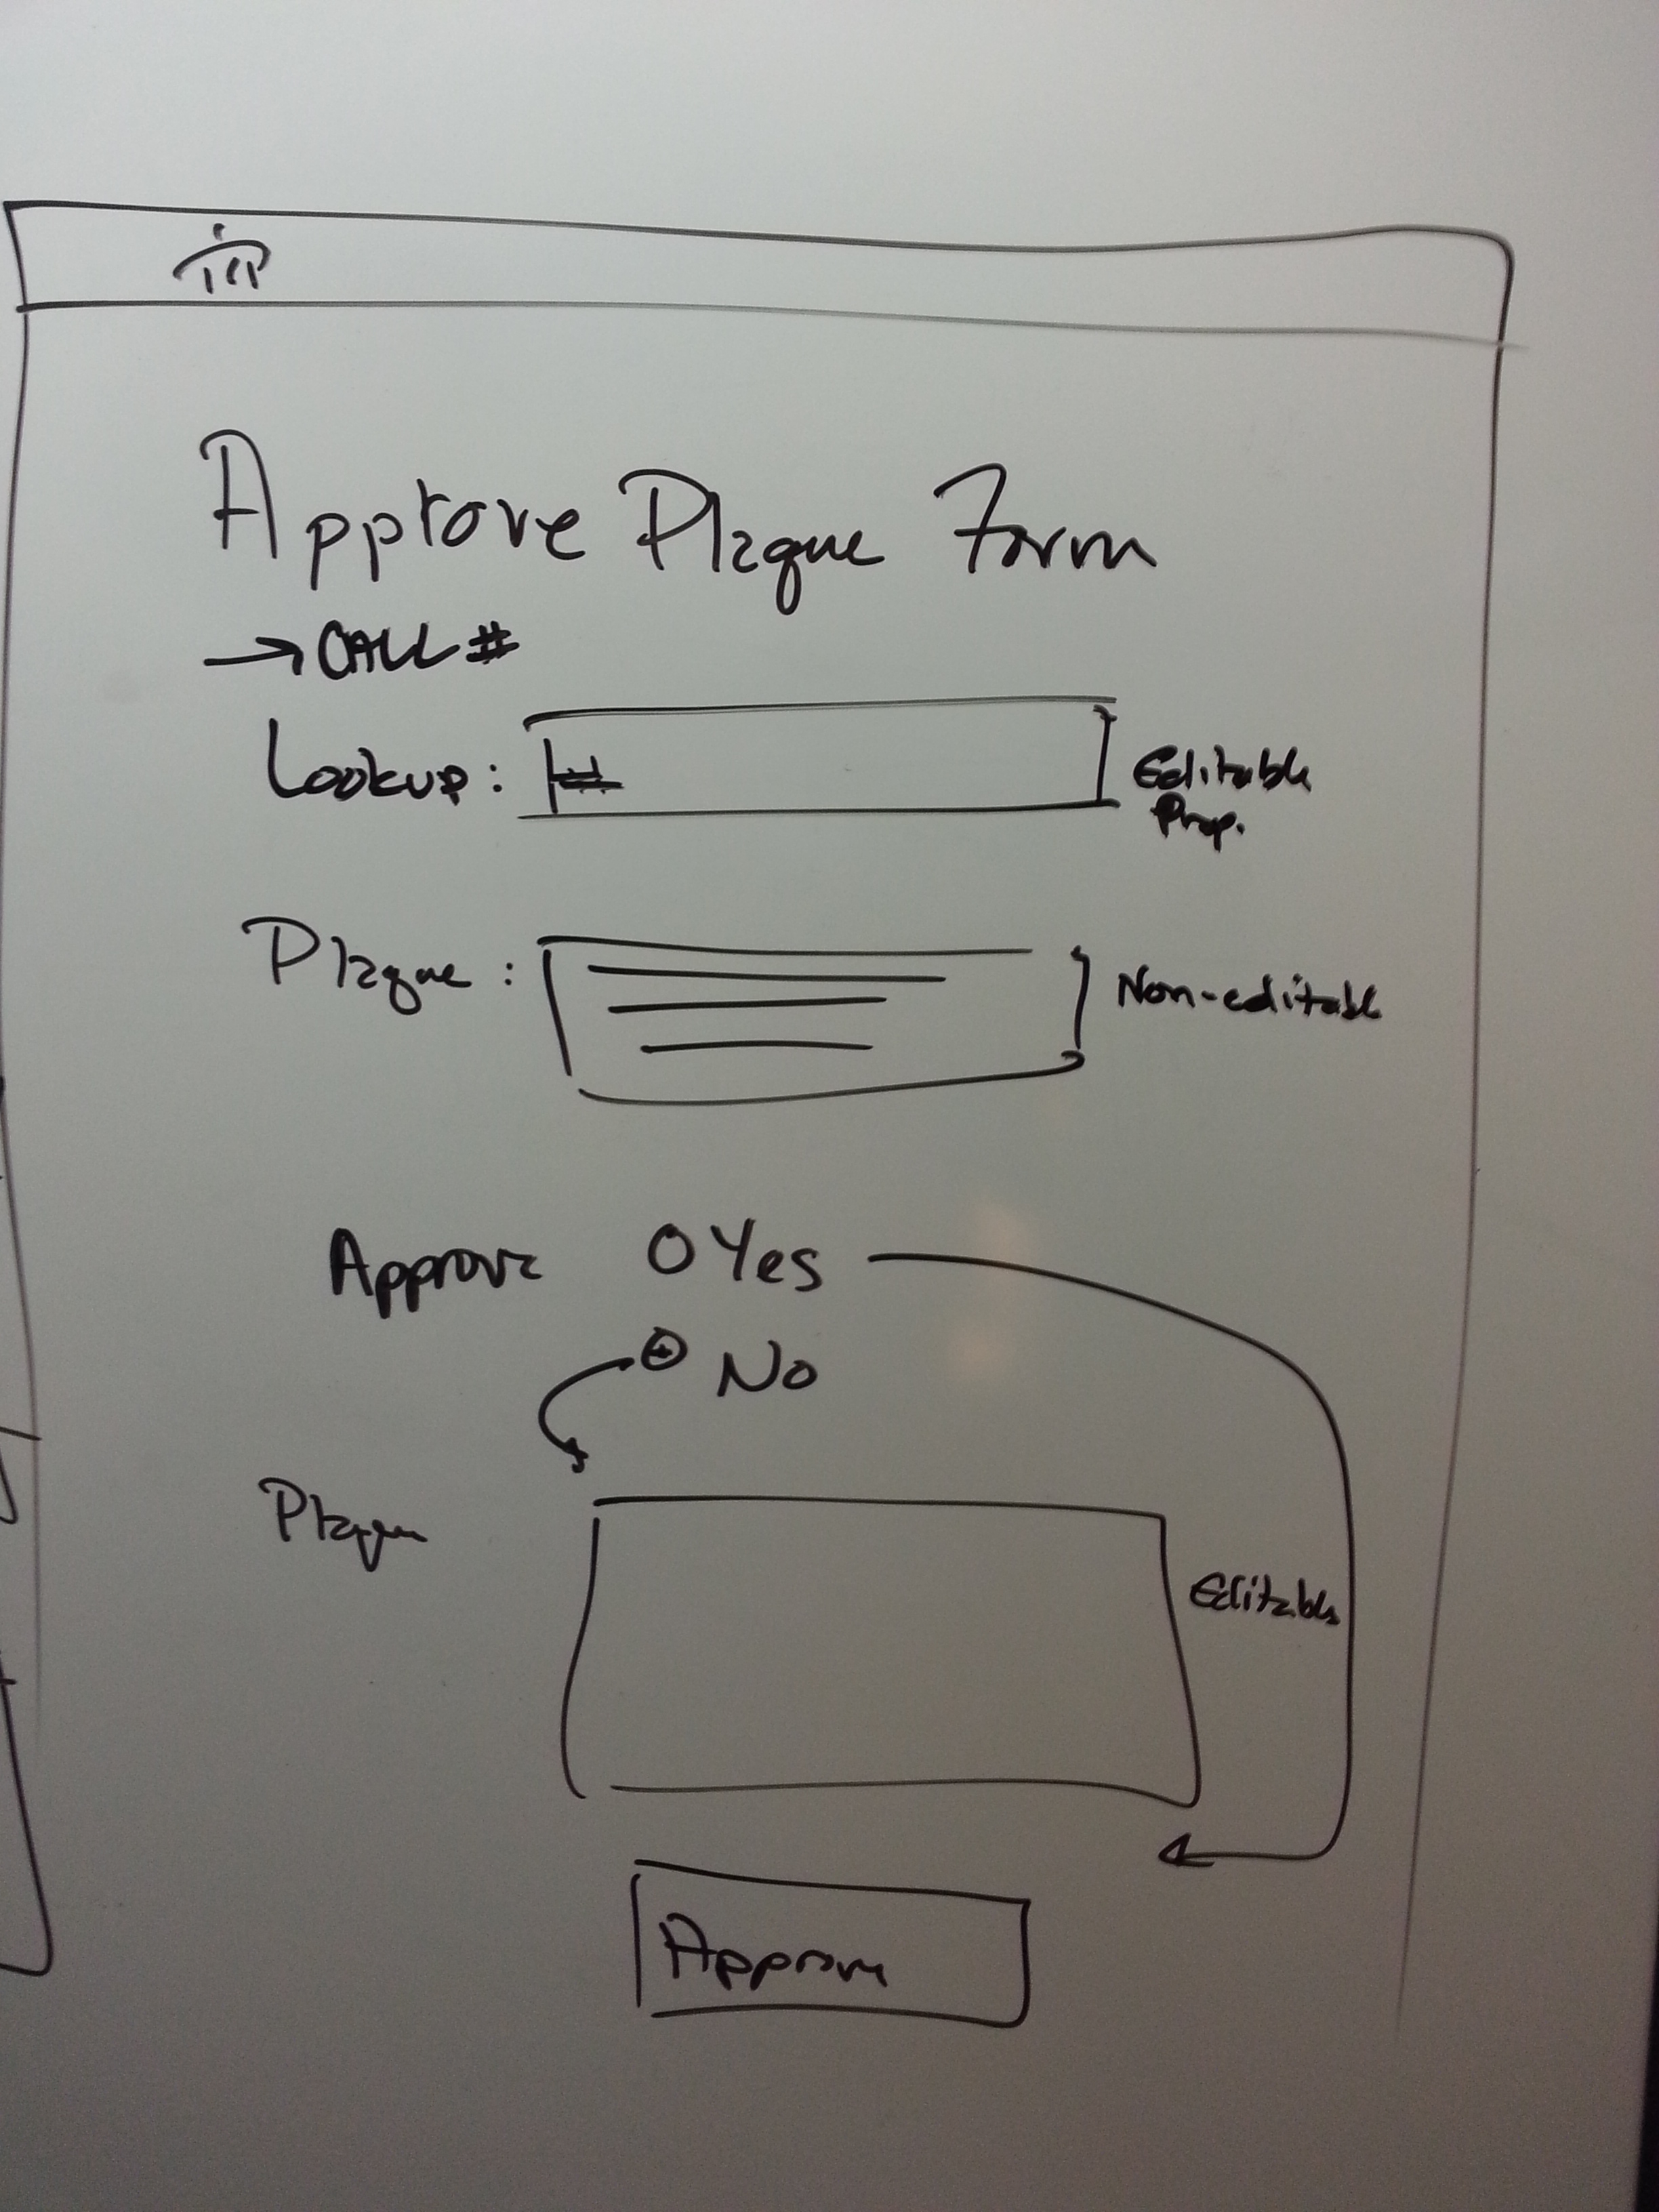 Approve Plaque Form
→ CALL #
Lookup: #
Editable
Prop.
Plaque:
Non-editable
Approve O Yes
No
Plaque
Editable
Approve